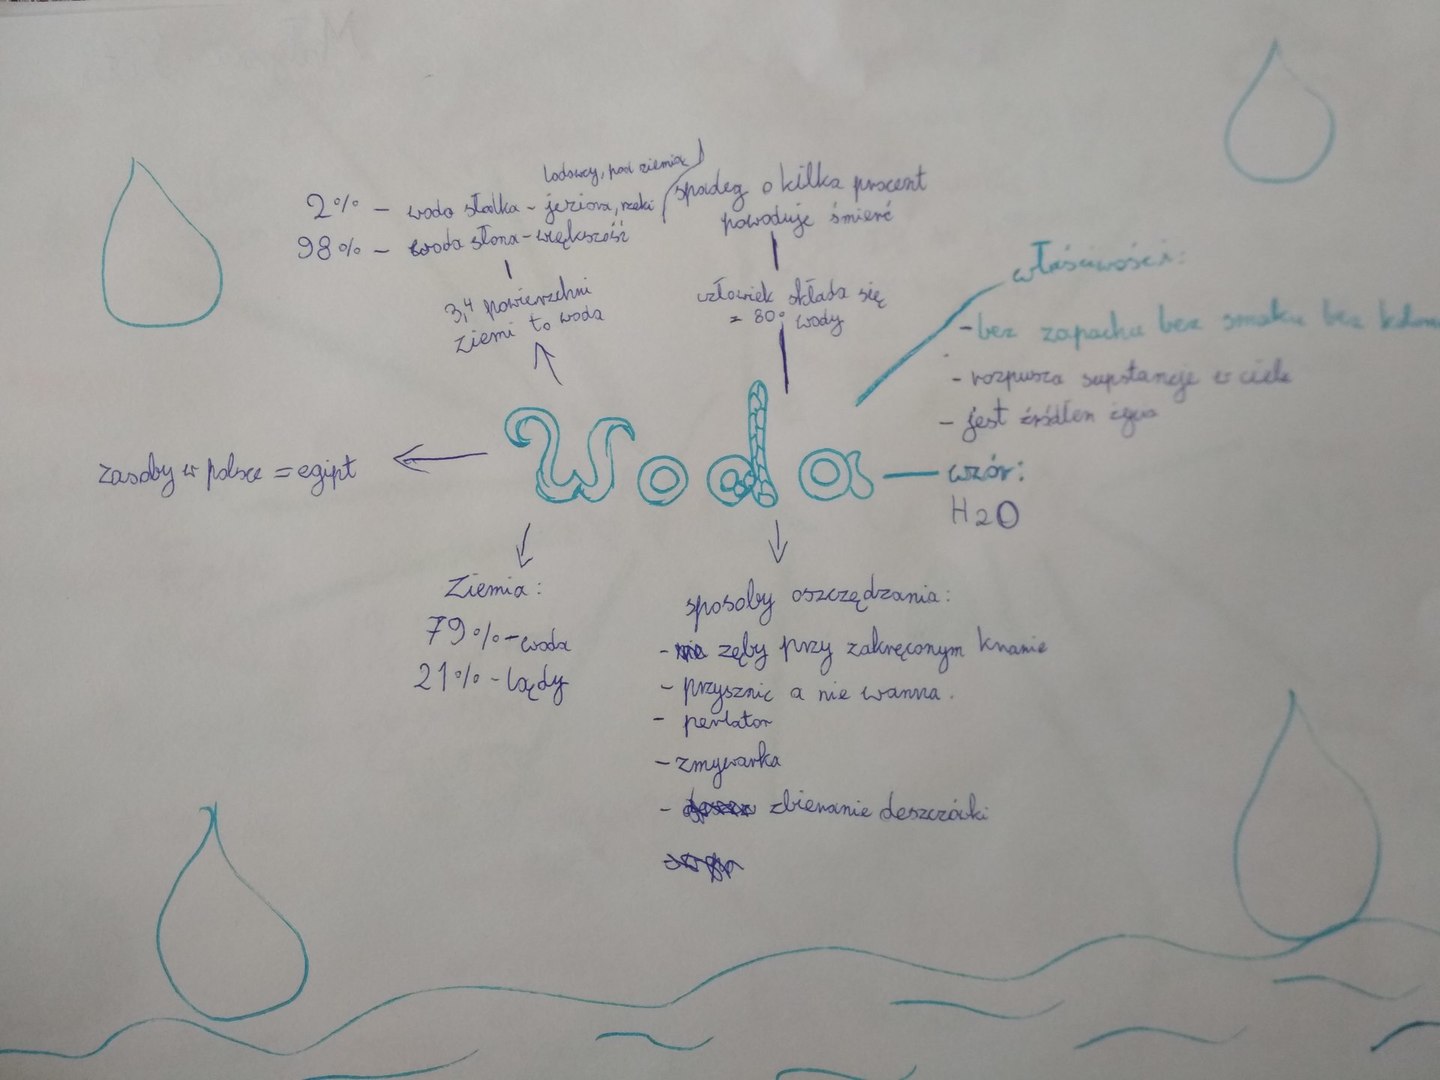 lodowcy, pod ziemia
2% - woda słodka - jeziora, rzeki
98% - woda słona - większość
3,4 powierzchni
ziemi to woda
spadeg o kilka procent
powoduje śmierć
człowiek składa się
= 80% wody
właściwości:
- bez zapachu bez smaku bez
- rozpusza supstancje w ciele
- jest źródłem życia
Woda
wzór:
H2O
zasoby w polsce = egipt
Ziemia:
79% - woda
21% - lądy
sposoby oszczędzania:
- zęby przy zakręconym knanie
- przysznic a nie wanna.
- perlator
- zmywarka
- zbieranie deszczówki